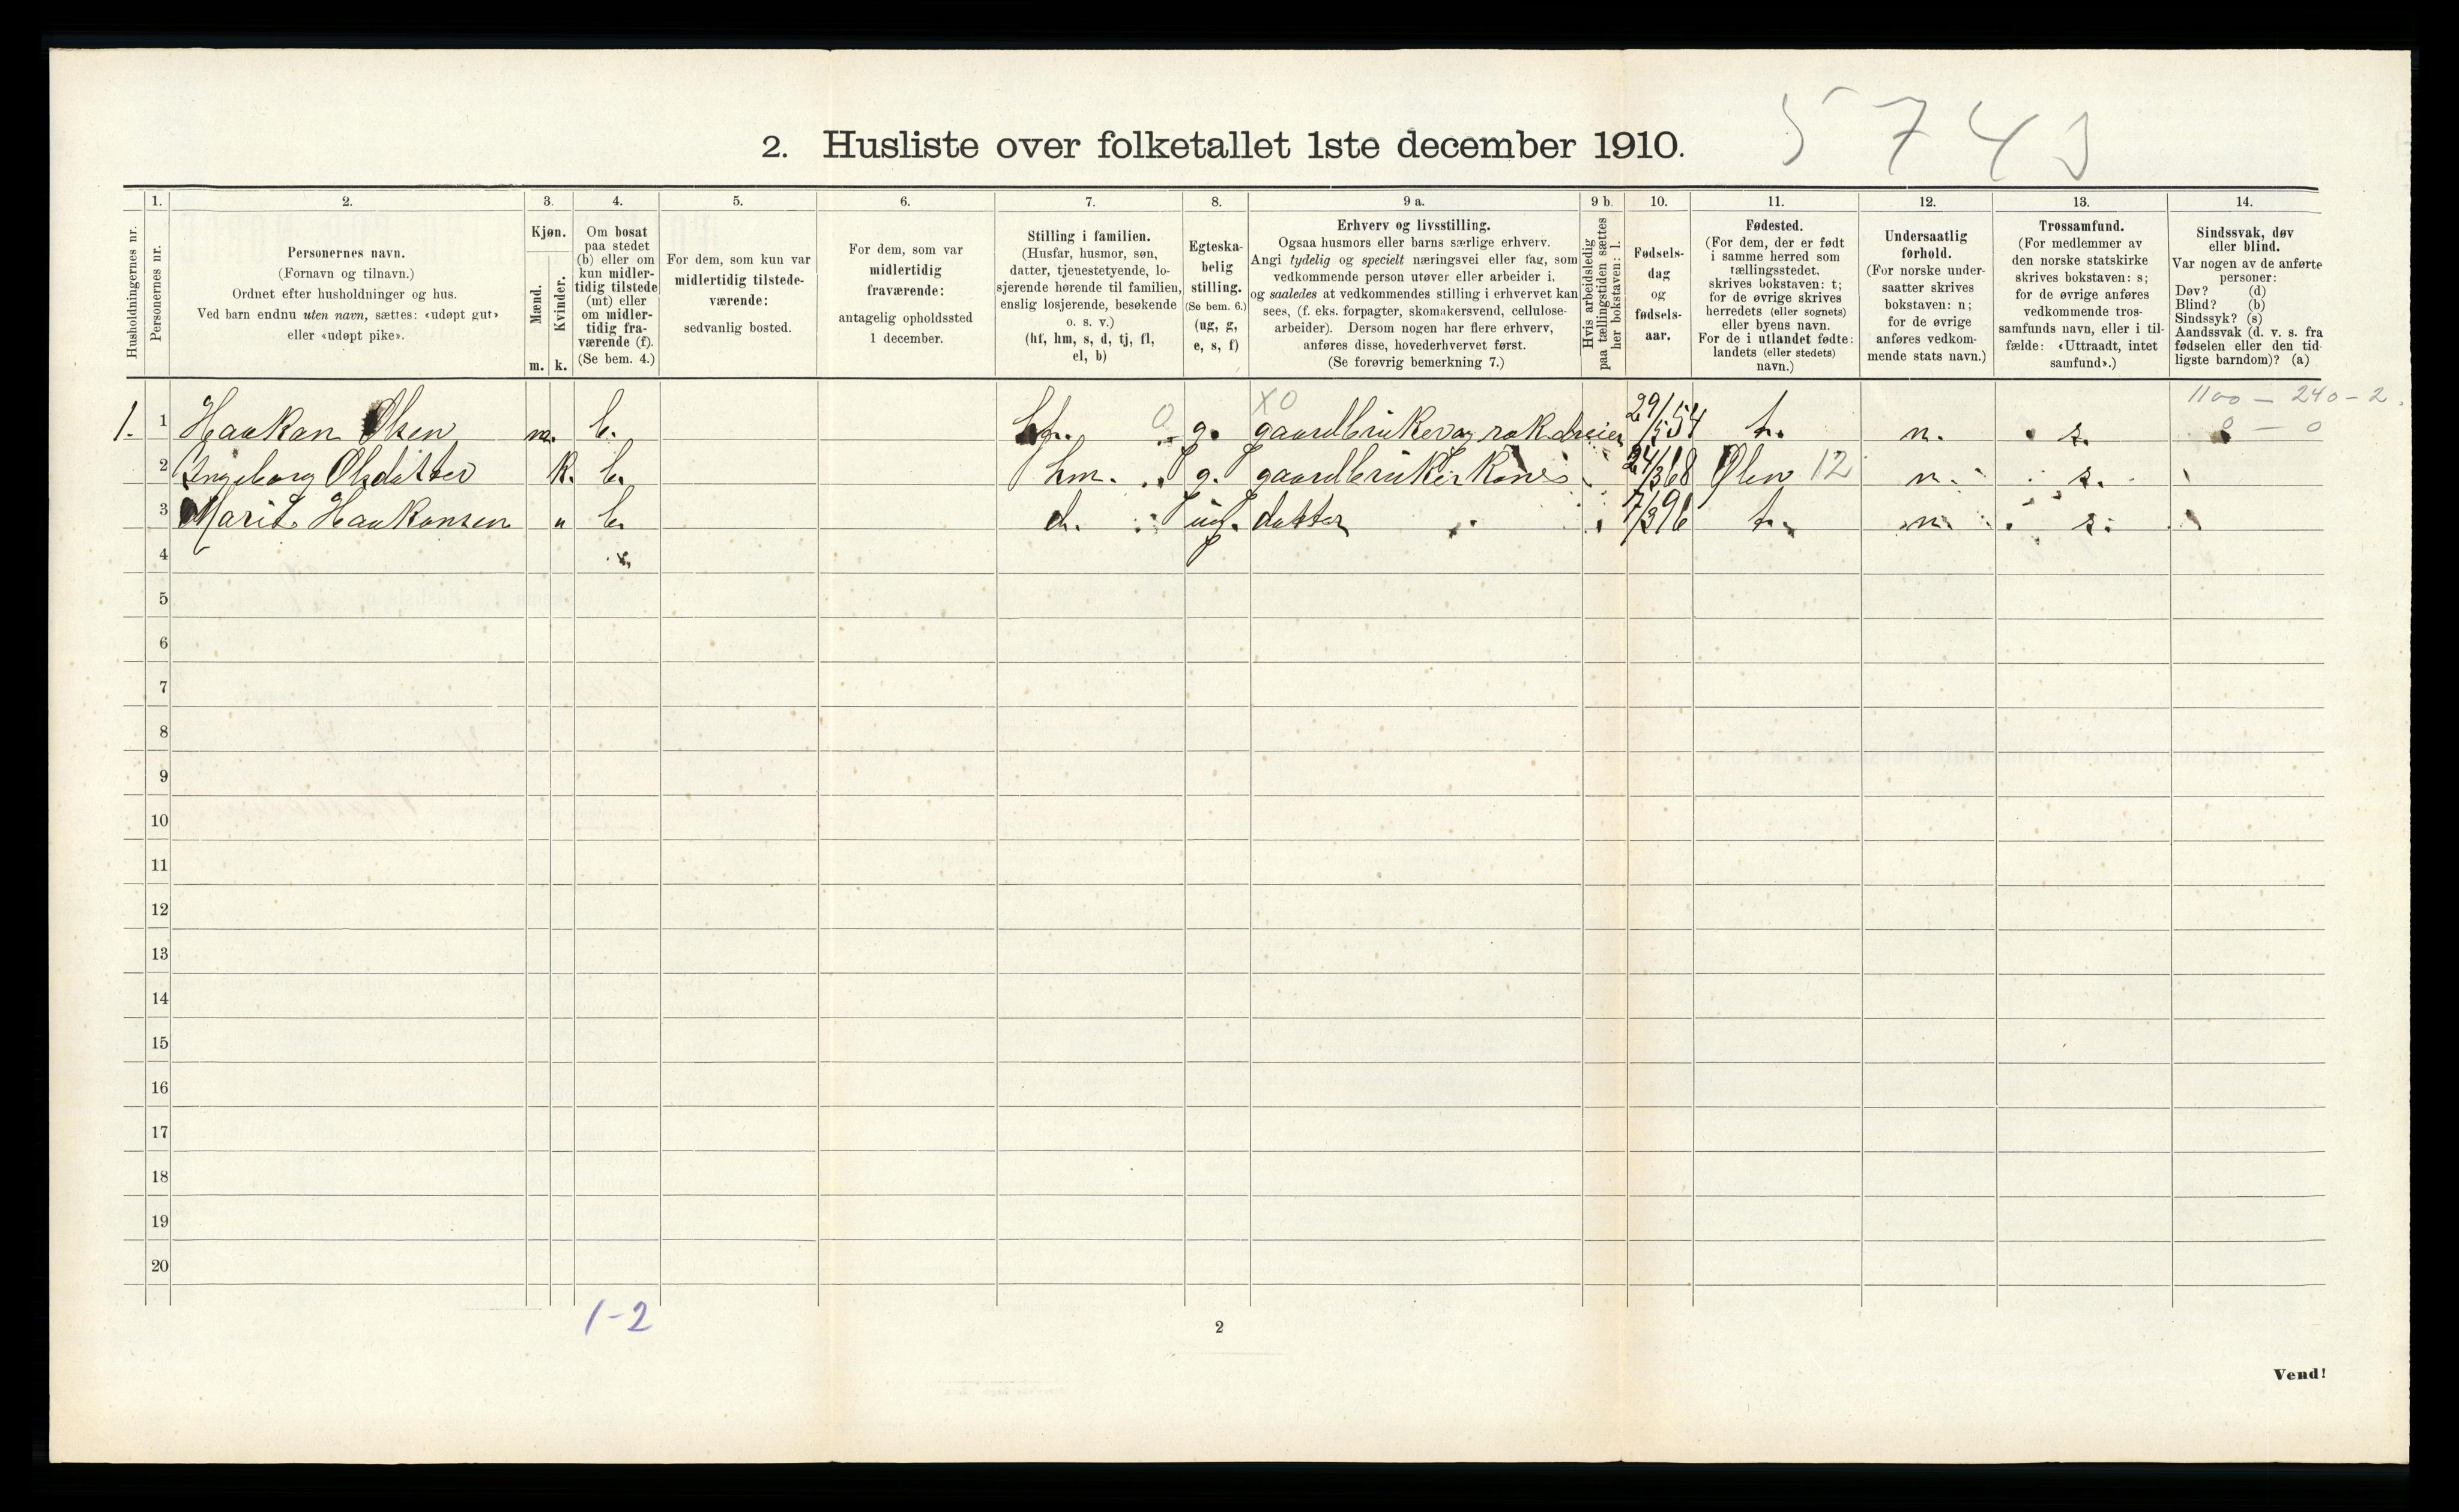 5743
2. Husliste over folketallet 1ste december 1910.
Husholdningernes nr.
1.
Personernes nr.
2.
Personernes navn.
(Fornavn og tilnavn.)
Ordnet efter husholdninger og hus.
Ved barn endnu uten navn, sættes: «udøpt gut»
eller «udøpt pike».
3.
Kjøn.
Mænd.
Kvinder.
m. k.
4.
Om bosat
paa stedet
(b) eller om
kun midler-
tidig tilstede
(mt) eller
om midler-
tidig fra-
værende (f).
(Se bem. 4.)
5.
For dem, som kun var
midlertidig tilstede-
værende:
sedvanlig bosted.
6.
For dem, som var
midlertidig
fraværende:
antagelig opholdssted
1 december.
7.
Stilling i familien.
(Husfar, husmor, søn,
datter, tjenestetyende, lo-
sjerende hørende til familien,
enslig losjerende, besøkende
o. s. v.)
(hf, hm, s, d, tj, fl,
el, b)
8.
Egteska-
belig
stilling.
(Se bem. 6.)
(ug, g,
e, s, f)
9 a.
Erhverv og livsstilling.
Ogsaa husmors eller barns særlige erhverv.
Angi tydelig og specielt næringsvei eller fag, som
vedkommende person utøver eller arbeider i,
og saaledes at vedkommendes stilling i erhvervet kan
sees, (f. eks. forpagter, skomakersvend, cellulose-
arbeider). Dersom nogen har flere erhverv,
anføres disse, hovederhvervet først.
(Se forøvrig bemerkning 7.)
9 b.
Hvis arbeidsledig
paa tællingstiden sættes
her bokstaven: l.
10.
Fødsels-
dag
og
fødsels-
aar.
11.
Fødested.
(For dem, der er født
i samme herred som
tællingsstedet,
skrives bokstaven: t;
for de øvrige skrives
herredets (eller sognets)
eller byens navn.
For de i utlandet fødte:
landets (eller stedets)
navn.)
12.
Undersaatlig
forhold.
(For norske under-
saatter skrives
bokstaven: n;
for de øvrige
anføres vedkom-
mende stats navn.)
13.
Trossamfund.
(For medlemmer av
den norske statskirke
skrives bokstaven: s;
for de øvrige anføres
vedkommende tros-
samfunds navn, eller i til-
fælde: «Uttraadt, intet
samfund».)
14.
Sindssvak, døv
eller blind.
Var nogen av de anførte
personer:
Døv? (d)
Blind? (b)
Sindssyk? (s)
Aandssvak (d. v. s. fra
fødselen eller den tid-
ligste barndom)? (a)
XO 1100 - 240 - 2.
1. 1 Haakan Olsen m. b. hf. 0 g. gaardbruker og rokdreier 29/5 54 t. n. s. 0 - 0
2 Ingeborg Olsdatter k. b. hm. g. gaardbrukerkone 24/3 68 Ølen 12 n. s.
3 Marit Haakonsen " b. d. ug. datter 7/3 96 t. n. s.
4
5
6
7
8
9
10
11
12
13
14
15
16
17
18
19
20
1-2
2
Vend!